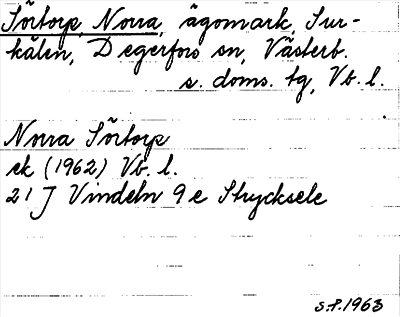 Sörtorp, Norra, ägomark, Sur-
kålen, Degerfors sn, Västerb.
s. doms. tg, Vb. l.
Norra Sörtorp
ek (1962) Vb. l.
21 J Vindeln 9 e Strycksele
S.P. 1963